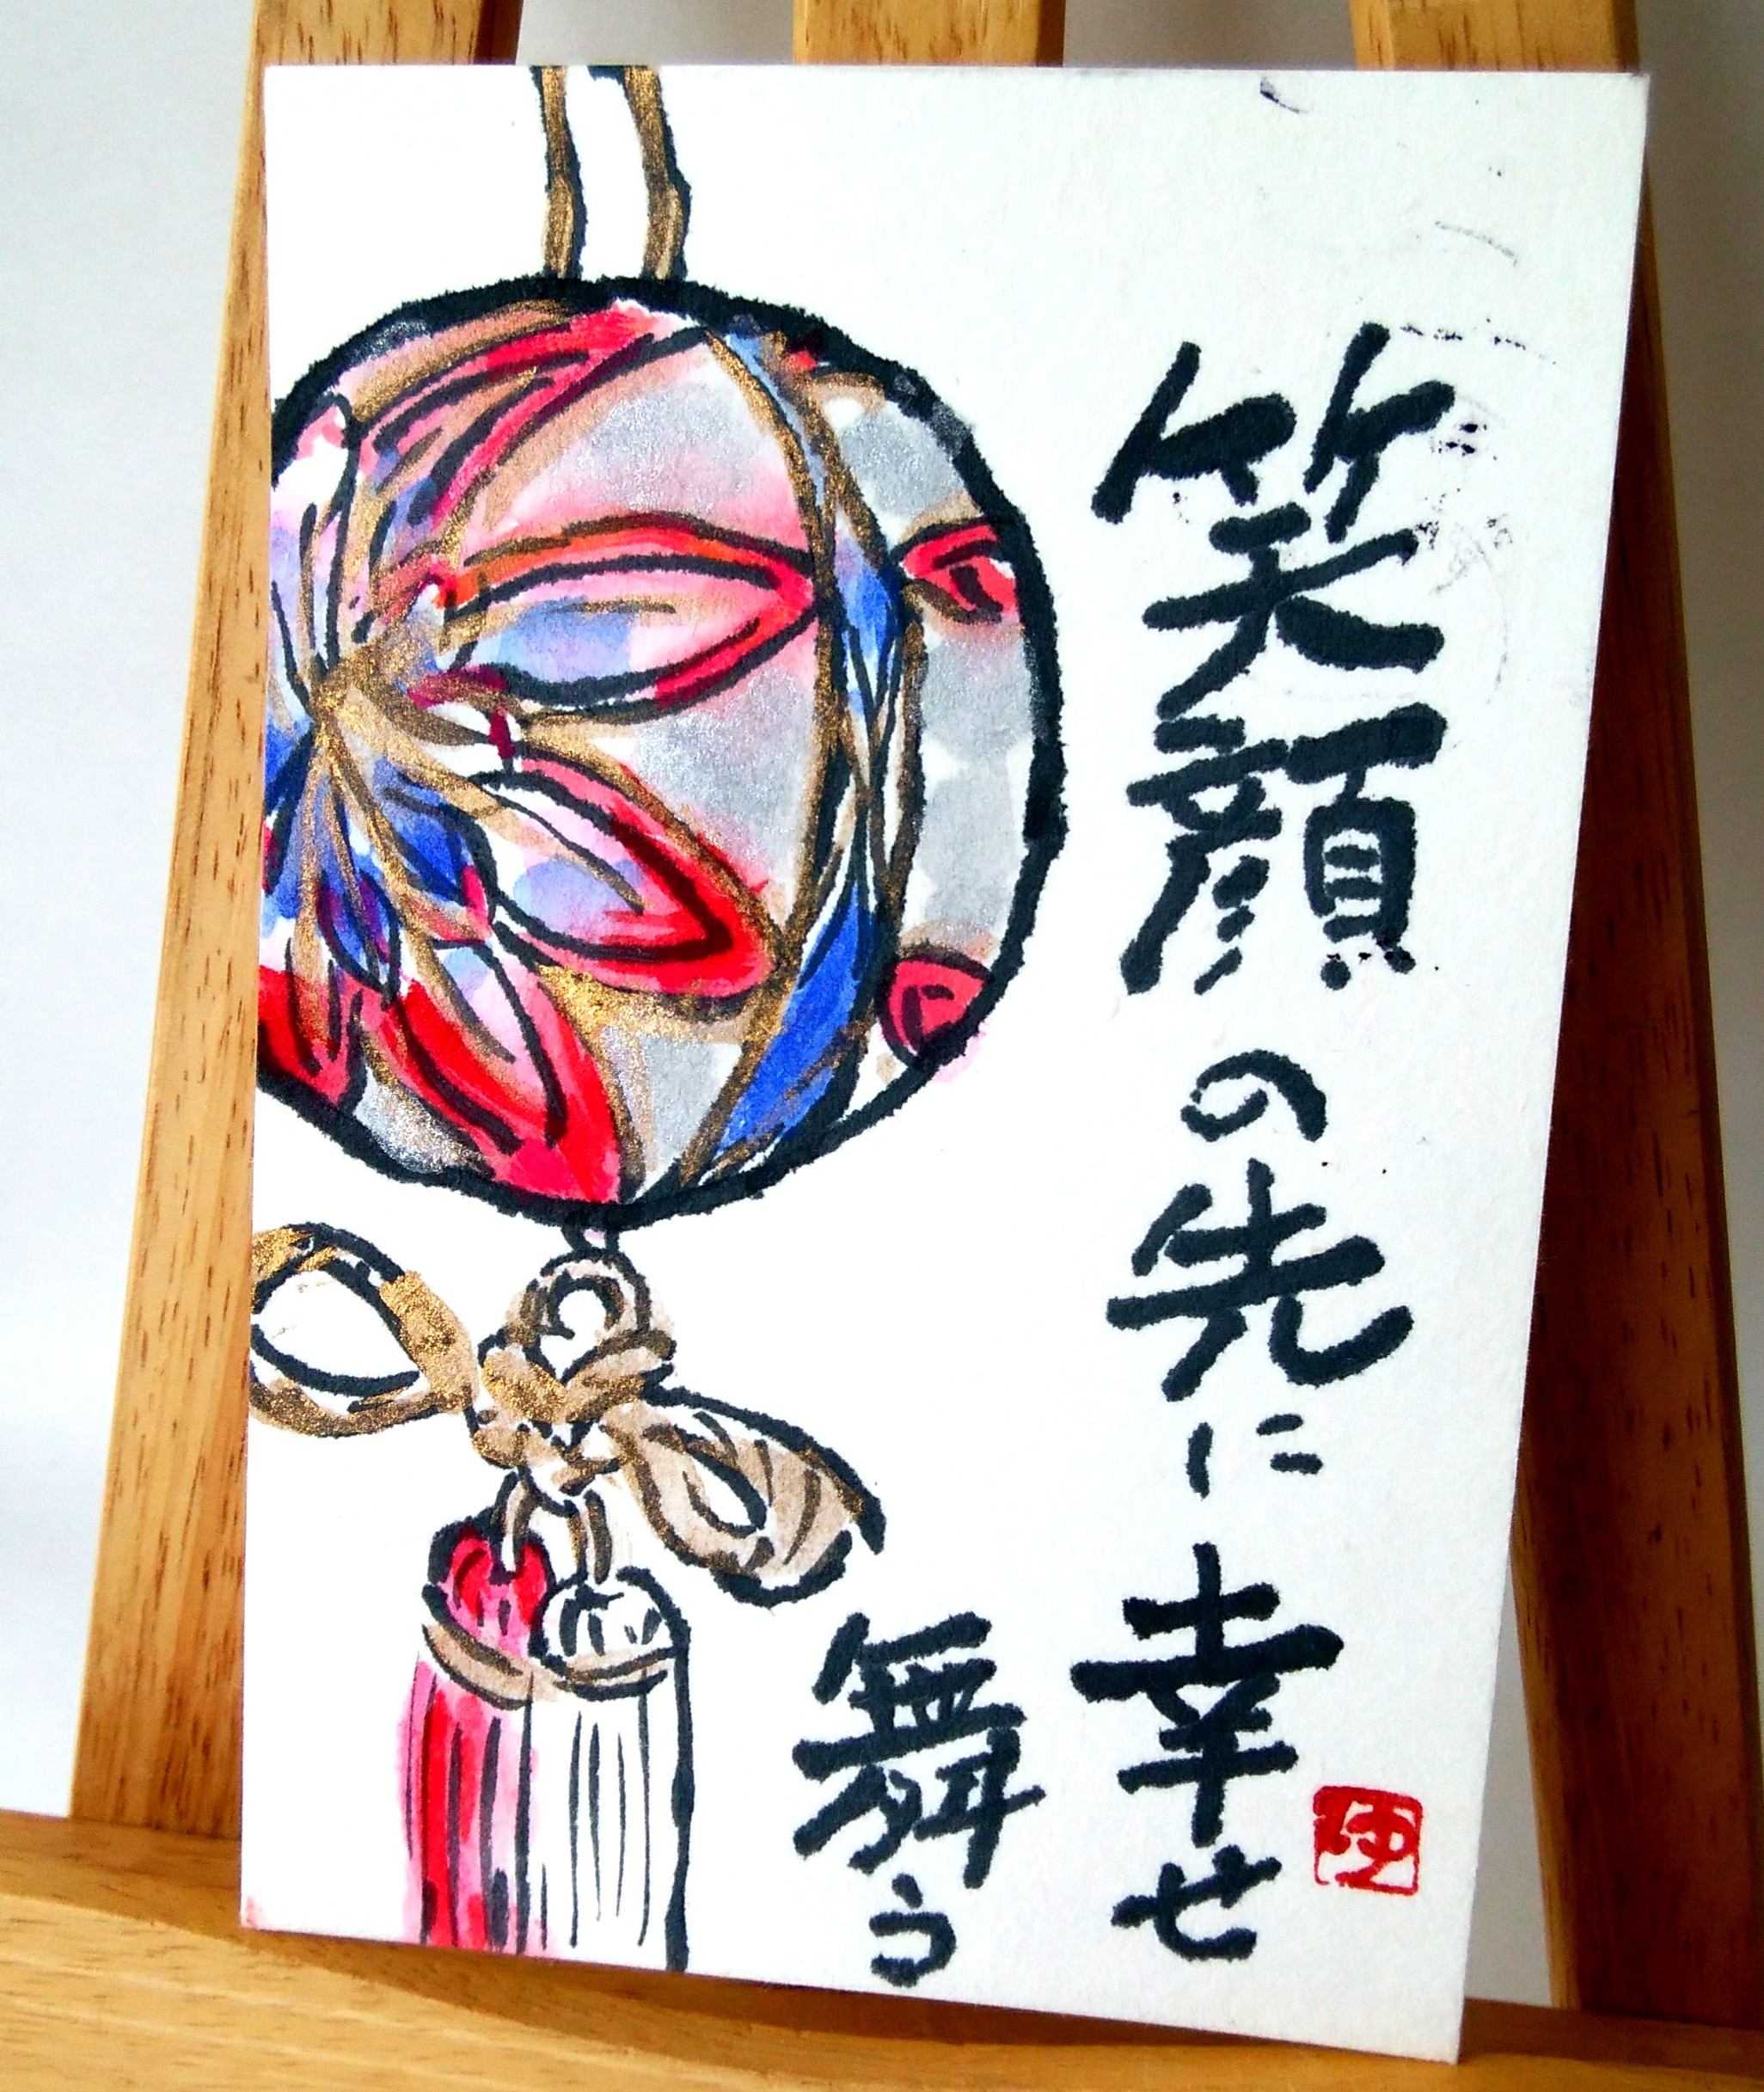 笑顔の先に幸せ
舞う
ゆ